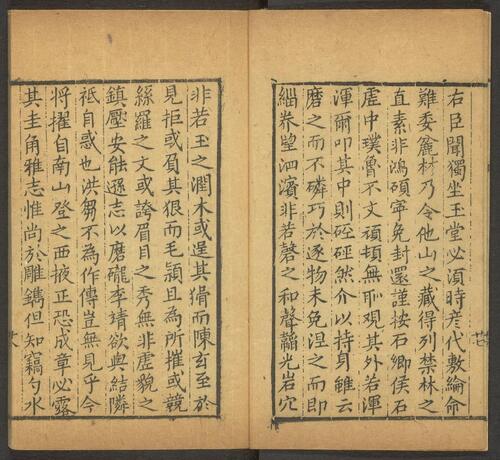 右臣聞獨坐玉堂必須時彦代敷綸命
難委麄材乃令他山之藏得列禁林之
直素非鴻碩寧免封還謹按石鄉侯石
虚中璞魯不文頑頓無耻覌其外若渾
渾爾叩其中則硜硜然介以持身雖云
磨之而不磷巧於逐物未免涅之而即
緇眷望泗濱非若磬之和聲韞光岩穴
非若玉之潤木或逞其猾而陳玄至於
見拒或負其狠而毛穎且為所摧或競
絲羅之文或誇眉目之秀無非虚貌之
鎮壓安能遜志以磨礲李靖欲與結隣
祗自惑也洪芻不為作傳豈無見乎今
將擢自南山登之西掖正恐成章必露
其圭角雅志惟尚於雕鐫但知竊勺水